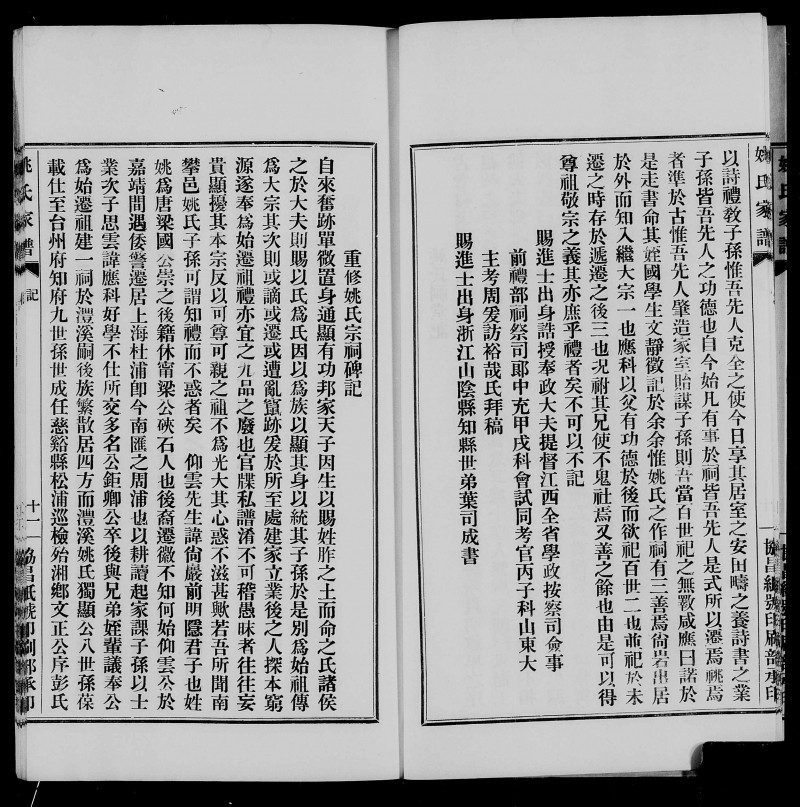 姚氏家譜
協昌紙號印刷部承印
以詩禮教子孫惟吾先人克全之使今日享其居室之安田疇之養詩書之業
子孫皆吾先人之功德也自今始凡有事於祠皆吾先人是式所以遷焉祧焉
者準於古惟吾先人肇造家室貽謀子孫則吾當百世祀之無斁咸應曰諾於
是走書命其姪國學生文靜徵記於余余惟姚氏之作祠有三善焉尙岩出居
於外而知入繼大宗一也應科以父有功德於後而欲祀百世二也並祀於未
遷之時存於遞遷之後三也況祔其兄使不鬼社焉又善之餘也由是可以得
尊祖敬宗之義其亦庶乎禮者矣不可以不記
賜進士出身誥授奉政大夫提督江西全省學政按察司僉事
前禮部祠祭司郞中充甲戌科會試同考官丙子科山東大
主考周爰訪裕哉氏拜稿
賜進士出身浙江山陰縣知縣世弟葉司成書
重修姚氏宗祠碑記
自來奮跡單微置身通顯有功邦家天子因生以賜姓胙之土而命之氏諸侯
之於大夫則賜以氏爲氏因以爲族以顯其身以統其子孫於是別爲始祖傳
爲大宗其次則或謫或遷或遭亂竄跡爰於所至處建家立業後之人探本窮
源遂奉爲始遷祖禮亦宜之九品之廢也官牒私譜淆不可稽愚昧者往往妄
貴顯擾其本宗反以可尊可親之祖不爲光大其心惑不滋甚歟若吾所聞南
攀邑姚氏子孫可謂知禮而不惑者矣 仰雲先生諱尙嚴前明隱君子也姓
姚爲唐梁國公崇之後籍休甯梁公硤石人也後裔遷徽不知何始仰雲公於
嘉靖間遇倭警遷居上海杜浦卽今南匯之周浦也以耕讀起家課子孫以士
業次子思雲諱應科好學不仕所交多名公鉅卿公卒後與兄弟姪輩議奉公
爲始遷祖建一祠於澧溪嗣後族繁散居四方而澧溪姚氏獨顯公八世孫葆
載仕至台州府知府九世孫世成任慈谿縣松浦巡檢殆湘鄕文正公序彭氏
姚氏家譜
記
十一
協昌紙號印刷部承印